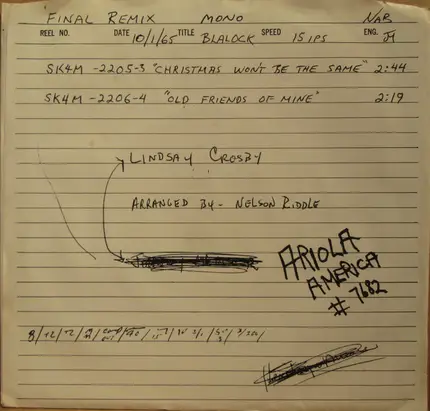 FINAL REMIX MONO NAB
REEL NO. DATE 10/1/65 TITLE BLALOCK SPEED 15 IPS ENG.
SK4M -2205-3 "CHRISTMAS WON'T BE THE SAME" 2:44
SK4M -2206-4 "OLD FRIENDS OF MINE" 2:19
LINDSAY CROSBY
ARRANGED BY - NELSON RIDDLE
ARIOLA
AMERICA
# 7682
8/12/12/